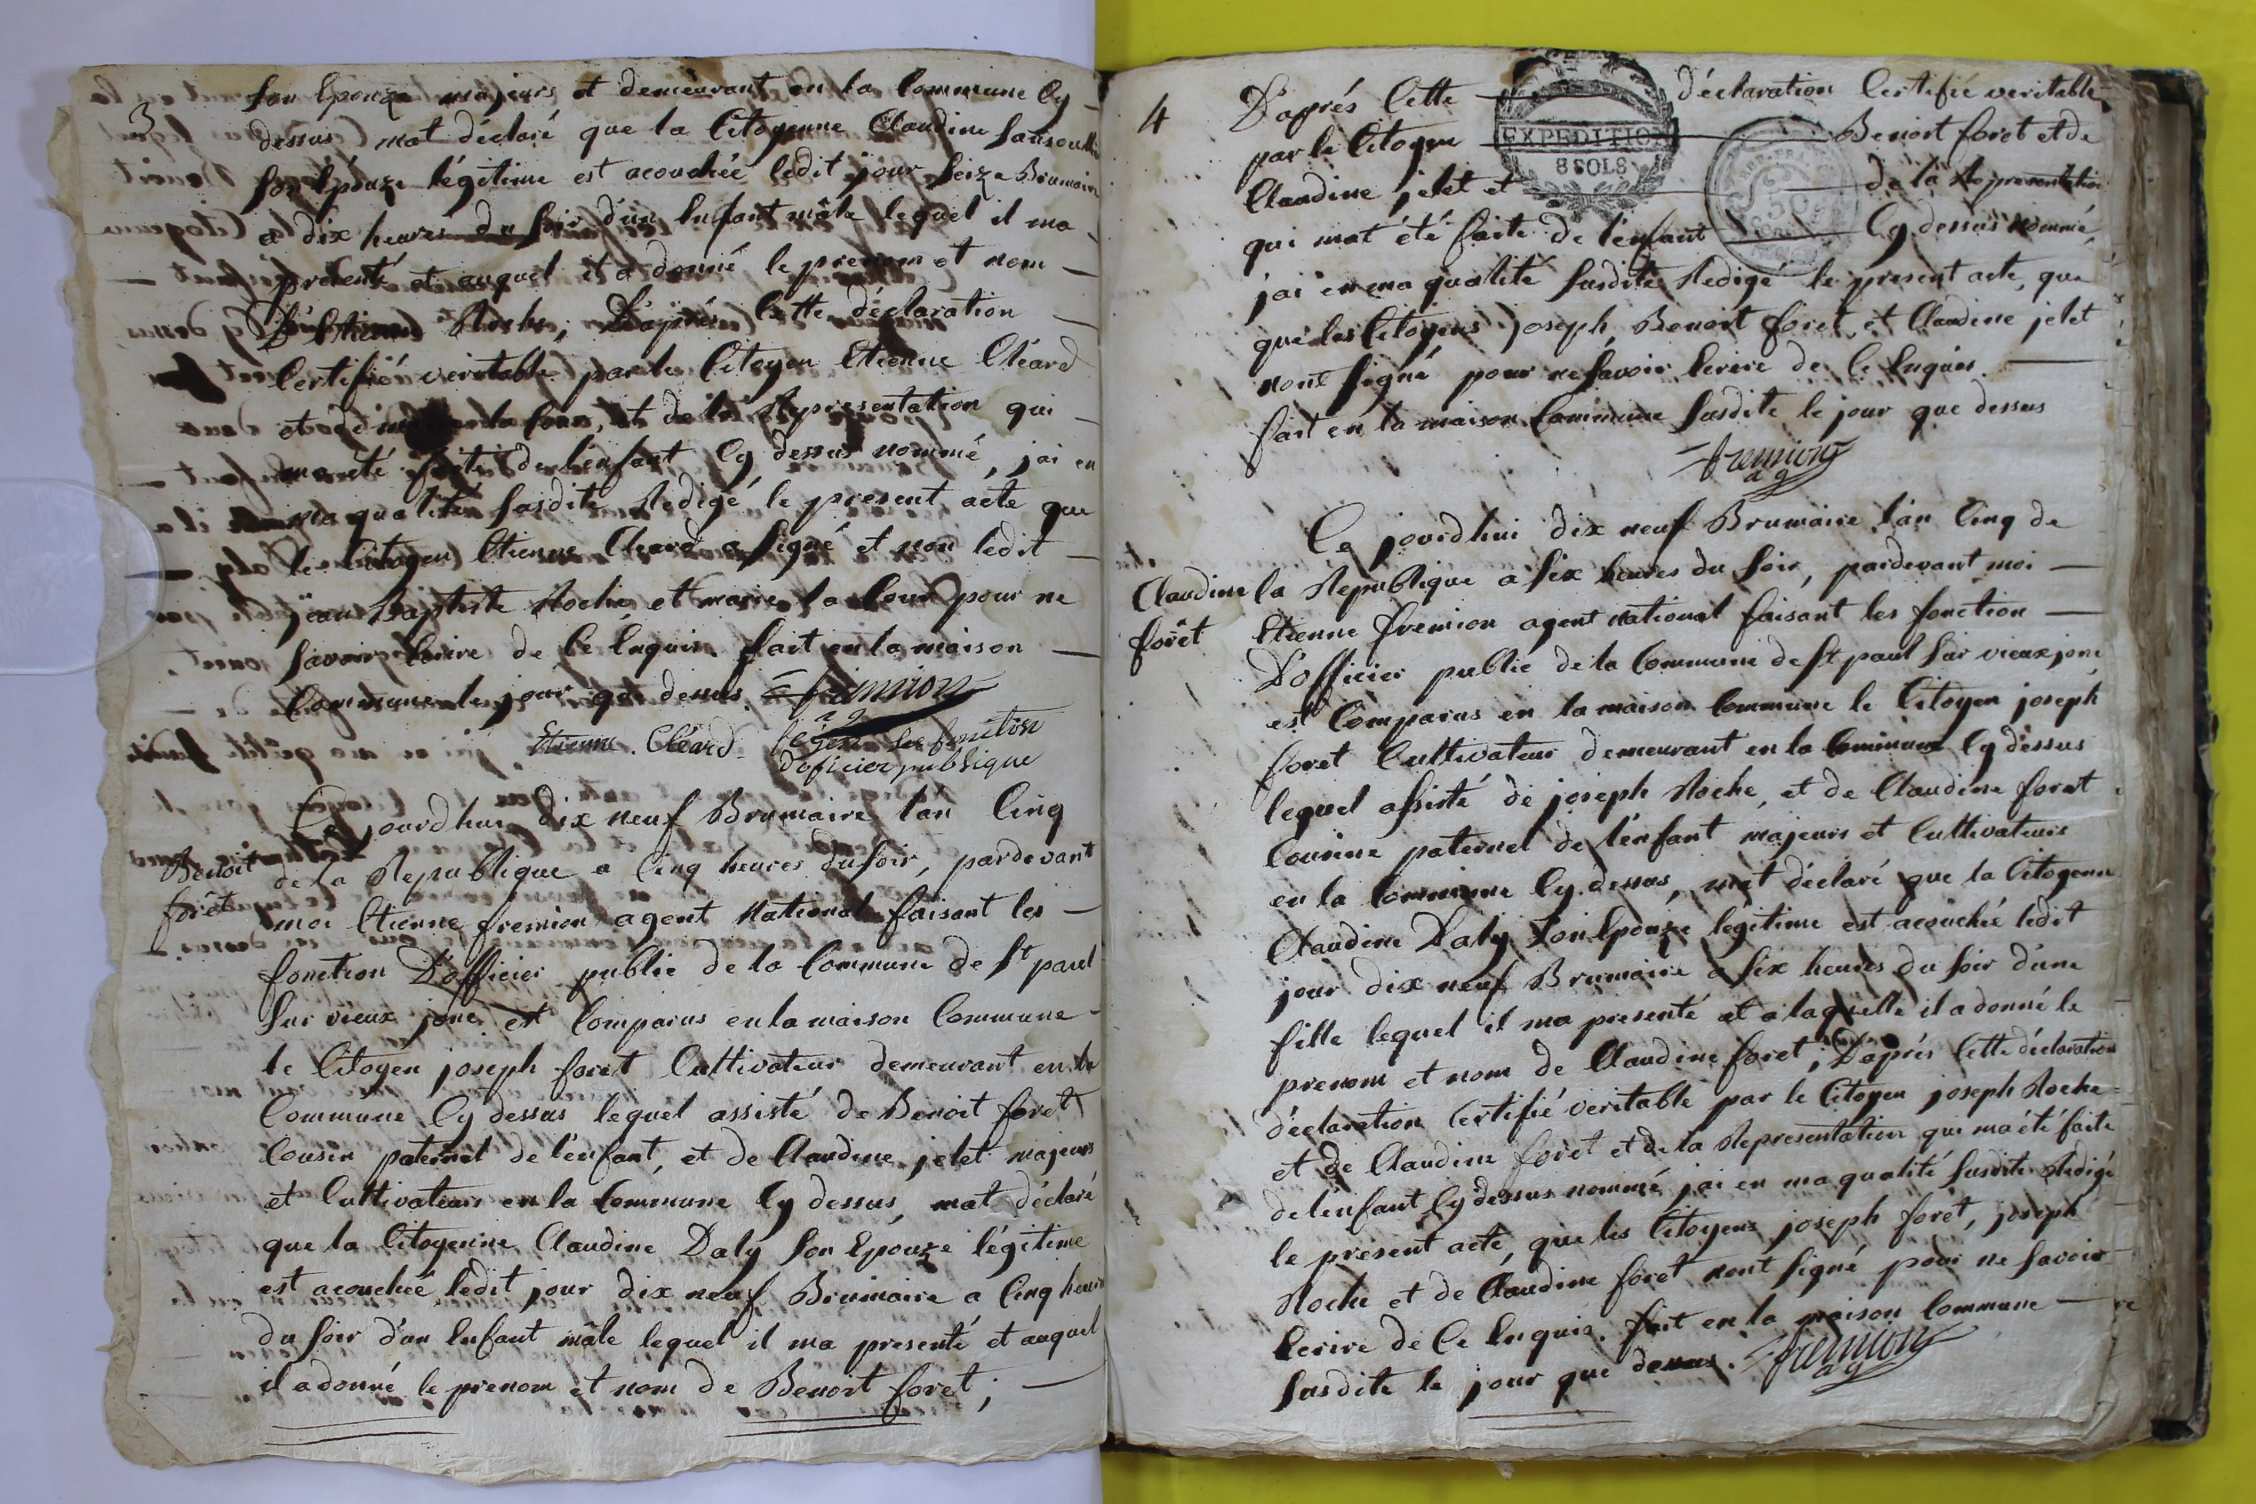 3
son Epouze majeurs et demeurant en la Commune Cy
dessus mat déclaré que la Citoyenne Claudine
son Epouze légitime est acouchée ledit jour seize Brumaire
a dix heures du soir d'un Enfant mâle lequel il ma
presenté et auquel il a donné le prenom et nom
D'Etienne Roche, D'après Cette déclaration
Certifié veritable par le Citoyen Etienne Cléard
et de la Cour, et de la Représentation qui
ma été faite de l'enfant Cy dessus nommé, jai en
ma qualité susdite Redigé le present acte que
le Citoyen Etienne Cleard a signé et non ledit
jean Baptiste Roche et marie la Cour pour ne
savoir Ecrire de Ce Enquis. fait en la maison
Commune le jour que dessus. fremion
ag
Etienne. Cléard. fesen les fonction
doficier publique
Benoit
forêt
Ce jourdhui dix neuf Brumaire l'an Cinq
de la Republique a Cinq heures du soir, pardevant
moi Etienne fremion agent National faisant les
fonction D'officier public de la Commune de St paul
sur vieux jonc est Comparus en la maison Commune
le Citoyen joseph forêt Cultivateur demeurant en la
Commune Cy dessus lequel assisté de Benoit forêt
Cousin paternel de l'enfant, et de Claudine jelet majeurs
et Cultivateurs en la Commune Cy dessus, mat déclaré
que la Citoyenne Claudine Daly son Epouze légitime
est acouchée ledit jour dix neuf Brumaire a Cinq heures
du soir d'un Enfant mâle lequel il ma presenté et auquel
il a donné le prenom et nom de Benoit forêt;
4
D'aprés Cette déclaration Certifié veritable
EXPEDITION
8 SOLS
par le Citoyen Benoit foret et de
Claudine jelet et de la Representation
qui mat été faite de l'enfant Cy dessus nommé,
jai en ma qualité susdite Redigé le present acte, que
que les Citoyens joseph, Benoit foret, et Claudine jelet
nont signé pour ne savoir Ecrire de Ce Enquis.
fait en la maison Commune susdite le jour que dessus
fremion
ag
Claudine
forêt
Ce jourdhui dix neuf Brumaire l'an Cinq de
la Republique a six heures du soir, pardevant moi
Etienne fremion agent national faisant les fonction
D'officier public de la Commune de St paul sur vieux jonc
est Comparus en la maison Commune le Citoyen joseph
foret Cultivateur demeurant en la Commune Cy dessus
lequel assisté de joseph Roche, et de Claudine foret
Cousine paternel de l'enfant majeurs et Cultivateurs
en la Commune Cy dessus, mat déclaré que la Citoyenne
Claudine Daly son Epouze legitime est acouchée ledit
jour dix neuf Brumaire a six heures du soir d'une
fille lequel il ma presenté et a laquelle il a donné le
prenom et nom de Claudine foret; D'aprés Cette déclaration
déclaration Certifié veritable par le Citoyen joseph Roche
et de Claudine foret et de la Representation qui ma été faite
de l'enfant Cy dessus nommé jai en ma qualité susdite Redigé
le present acte, que les Citoyens joseph forêt, joseph
Roche et de Claudine foret nont signé pour ne savoir
Ecrire de Ce Enquis. fait en la maison Commune
susdite le jour que dessus. fremion
ag